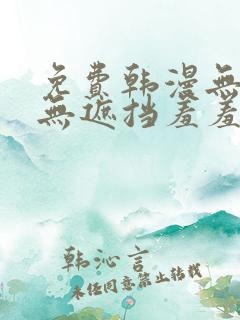 免費韩漫無
無遮挡羞羞
韩沁言
未任同意禁止转载